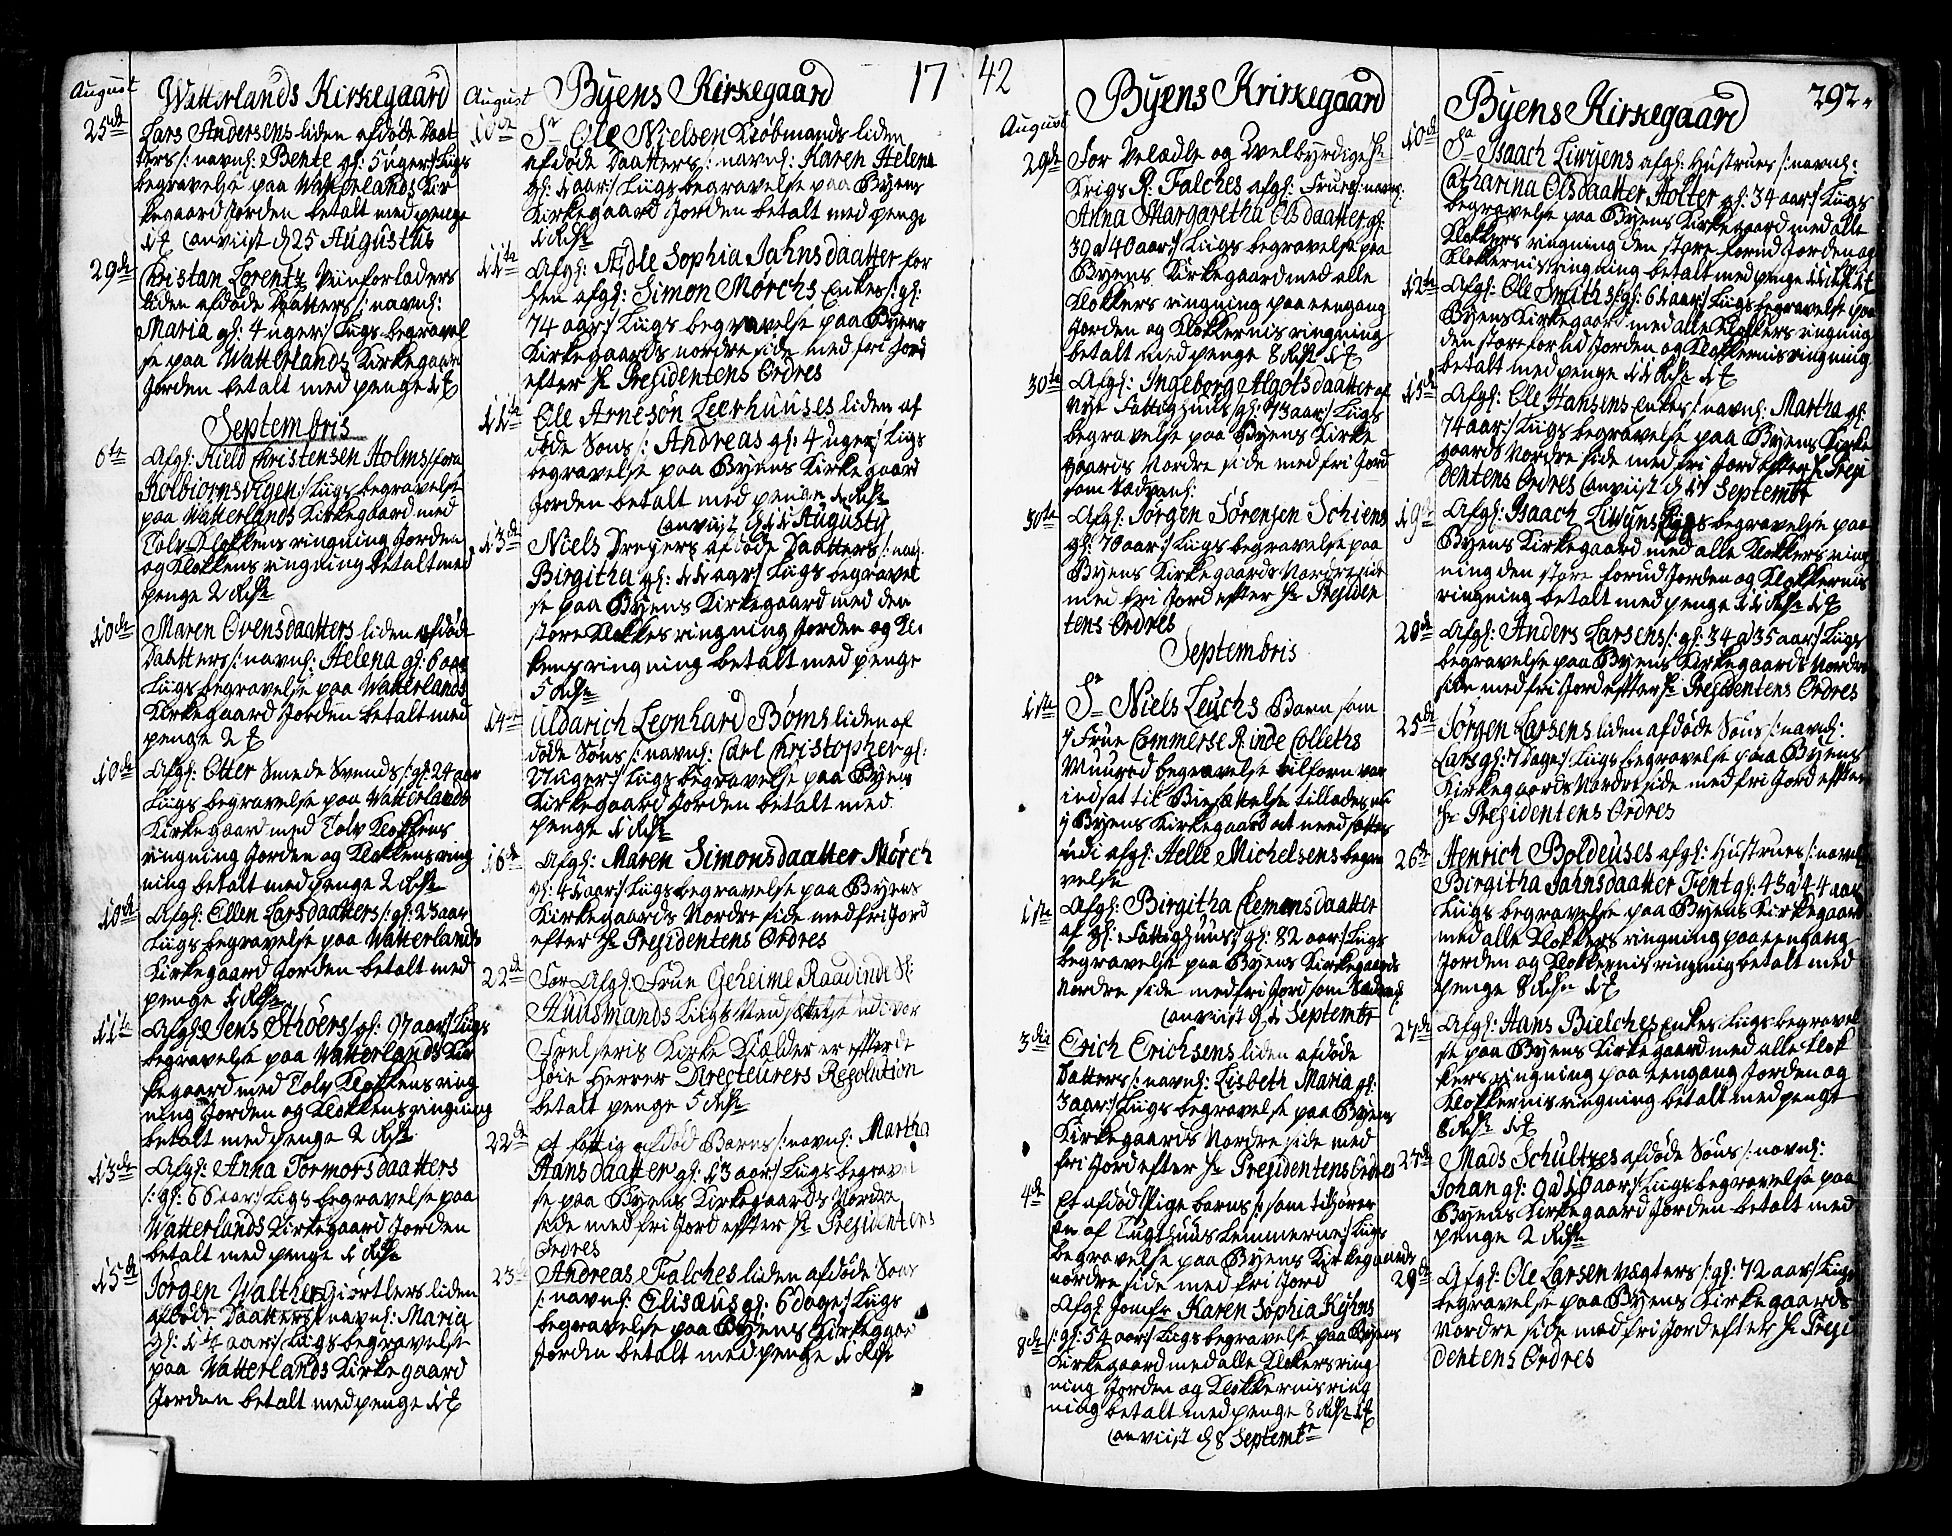 17
42
292.
August
Watterlands Kirkegaard
25de
Lars Andersens liden afdøde Daat
ters /: navnl: Bente gl: 5 uger:/ Liigs
begravelse paa Watterlands Kir
kegaard Jorden betalt med penge
Anviist d 25 Augustus
29de
Christan Lorentz Viinforladers
liden afdøde Daatters /: navnl:
Maria gl: 4 uger:/ Liigs begravel
se paa Watterlands Kirkegaard
Jorden betalt med penge
Septembris
6te
Afgl: Kield Christensen Holms /: fra
Kolbiornsvigen:/ Liigs begravelse
paa Watterlands Kirkegaard med
Tolv Klokkens ringning Jorden
og Klokkens ringning betalt med
penge 2 Rdr
10de
Maren Ovensdaatters liden afdøde
Daatters /: navnl: Helena gl: 6 aar
Liigs begravelse paa Watterlands
Kirkegaard Jorden betalt med
penge 2
10de
Afgl: Otter Smede Svends /: gl: 24 aar
Liigs begravelse paa Watterlands
Kirkegaard med Tolv Klokkens
ringning Jorden og Klokkens ring
ning betalt med penge 2 Rdr
10de
Afgl: Ellen Larsdaatters /: gl: 23 aar
Liigs begravelse paa Watterlands
Kirkegaard Jorden betalt med
penge 1 Rdr
11te
Afgl: Jens Sthöers /: gl: 97 aar:/ Liigs
begravelse paa Watterlands Kir
kegaard med Tolv Klokkens ring
ning Jorden og Klokkens ringning
betalt med penge 2 Rdr
13de
Afgl: Anna Tormorsdaatters
/: gl: 66 aar:/ Ligs begravelse paa
Watterlands Kirkegaard Jorden
betalt med penge 1 Rdr
15de
Jörgen Walther Giørtlers liden
afdøde Daatters /: navnl: Maria
gl: aar:/ Liigs begravelse
paa Watterlands Kirkegaard
Jorden betalt med penge
August
Byens Kirkegaard
10de
Sr Ole Nielsen Kiøbmands liden
afdøde Daatters /: navnl: Karen Helena
gl: 1 aar:/ Liigs begravelse paa Byens
Kirkegaard Jorden betalt med penge
1 Rdr
11te
Afgl: Aidle Sophia Jahnsdaatter for
hen afgl: Simon Mørchs Enkes /: gl:
74 aar:/ Liigs begravelse paa Byens
Kirkegaards nordre side med fri Jord
efter Hr Presidentens Ordres
11te
Ole Arnesön Leerhuuses liden af
døde Søns /: Andreas gl: 4 uger:/ Liigs
begravelse paa Byens Kirkegaard
Jorden betalt med penge 1 Rdr
Anviist d 11 Augusty
13de
Niels Dreyers afdøde Daatters /: navl:
Birgitha gl: 11 aar:/ Liigs begravel
se paa Byens Kirkegaard med den
store Klokkes ringning Jorden og Klo
kens ringning betalt med penge
5 Rdr
14de
Uldarich Leonhard Böms liden af
døde Søns /: navnl: Carl Christopher gl:
uger:/ Liigs begravelse paa Byens
Kirkegaard Jorden betalt med
penge 1 Rdr
16de
Afgl: Maren Simonsdaatter Mörch
gl: 41 aar:/ Liigs begravelse paa Byens
Kirkegaards Nordre side med fri Jord
efter Hr Presidentens Ordres
22de
For Afgl: Frue Geheime Raadinde Sl:
Huusmands Liigs Nedsættelse udi vor
Frelseris Kirke Kiælder er efter de
høie Herrer Directeurers Resolution
betalt penge 5 Rdr
22de
et fattig afdød Barns /: navnl: Martha
Hansdaatter gl: 13 aar:/ Liigs begravel
se paa Byens Kirkegaards Nordre
side med fri Jord efter Hr Presidentens
Ordres
23de
Andreas Falches liden afdøde Søns
/: navnl: Elisæus gl: 6 dage:/ Liigs
begravelse paa Byens Kirkegaard
Jorden betalt med penge 1 Rdr
August
Byens Krirkegaard
29de
For Velædle og Velbyrdige Hr
Krigs R: Falches afgl: Frues /: navnl:
Anna Margaretha Olsdaatter gl:
39 a 40 aar:/ Liigs begravelse paa
Byens Kirkegaard med alle
Klokkers ringning paa eengang
Jorden og Klokkernis ringning
betalt med penge 8 Rdr
30te
Afgl: Ingeborg Algotsdaatter af
Nye Fattighuus gl: 73 aar:/ Liigs
begravelse paa Byens Kirke
gaards Nordre side med fri Jord
som Sædvanl:
30te
Afgl: Jörgen Sörensen Schiens
gl: 70 aar:/ Liigs begravelse paa
Byens Kirkegaards Nordre side
med fri Jord efter Hr Presiden
tens Ordres
Septembris
1ste
Sr Niels Leuchs Barn som
i Frue Commerse R:inde Colleths
Muured begravelse tilforn var
indsat til Bisættelse tillades nu
i Byens Kirkegaard at needsættes
udi afgl: Helle Michelsens begra
velse
1ste
Afgl: Birgitha Clemensdaatter
af gl: Fattighuus gl: 82 aar:/ Liigs
begravelse paa Byens Kirkegaards
Nordre side med fri Jord som Sædvanl
Anviist d 1 Septembr
3die
Erich Erichsens liden afdøde
Datters /: navnl: Lisbeth Maria gl:
3 aar:/ Liigs begravelse paa Byens
Kirkegaards Nordre side med
fri Jord efter Hr Presidentens Ordres
4de
Et afdød Pige barns /: som tilhører
een af Tugthuus Lemmerne:/ Liigs
begravelse paa Byens Kirkegaards
nordre side med fri Jord
8de
Afgl: Jomfr Karen Sophia Kÿhns
/: gl: 54 aar:/ Liigs begravelse paa Byens
Kirkegaard med alle Klokkers ring
ning Jorden og Klokkernis ring
ning betalt med penge 8 Rdr
Anviist d 8 Septembr
Byens Kirkegaard
10de
Sr Isaach Liwÿens afgl: Hustrues /: navnl:
Catharina Olsdaatter Holter gl: 34 aar:/ Liigs
begravelse paa Byens Kirkegaard med alle
Klokkers ringning den store forud Jorden og
Klokkernis ringning betalt med penge 11 Rdr
12te
Afgl: Ole Smiths /: gl: 61 aar:/ Liigs begravelse paa
Byens Kirkegaard med alle Klokkers ringning
den store forud Jorden og Klokkernis ringning
betalt med penge 11 Rdr
15de
Afgl: Ole Hansens Enkes /: navnl: Martha gl:
74 aar:/ Liigs begravelse paa Byens Kirke
gaards Nordre side med fri Jord efter Hr Presi
dentens Ordres Anviist d Septembr
19de
Afgl: Isaach Liwÿns Liigs begravelse paa
Byens Kirkegaard med alle Klokkers ring
ning den store forud Jorden og Klokkernis
ringning betalt med penge 11 Rdr
20de
Afgl: Anders Larsens /: gl: 34 a 35 aar:/ Liigs
begravelse paa Byens Kirkegaards Nordre
side med fri Jord efter Hr Presidentens Ordres
25de
Jörgen Larsens liden afdøde Søns /: navnl:
Lars gl: 7 Dage:/ Liigs begravelse paa Byens
Kirkegaards Nordre side med fri Jord efter
Hr Presidentens Ordres
26de
Henrich Boldeuses afgl: Hustrues /: navnl
Birgitha Jahnsdaatter Fent gl: 43 a 44 aar
Liigs begravelse paa Byens Kirkegaard
med alle Klokkers ringning paa eengang
Jorden og Klokkernis ringning betalt med
penge 8 Rdr
27de
Afgl: Hans Bielches Enkes Liigs begravel
se paa Byens Kirkegaard med alle Klok
kers ringning paa eengang Jorden og
Klokkernis ringning betalt med penge
8 Rdr
27de
Mads Schultzes afdøde Søns /: navnl:
Johan gl: 9 a 10 aar:/ Liigs begravelse paa
Byens Kirkegaard Jorden betalt med
penge 2 Rdr
29de
Afgl: Ole Larsen Vægters /: gl: 72 aar:/ Liigs
begravelse paa Byens Kirkegaards
Nordre side med fri Jord efter Hr Presi
dentens Ordres